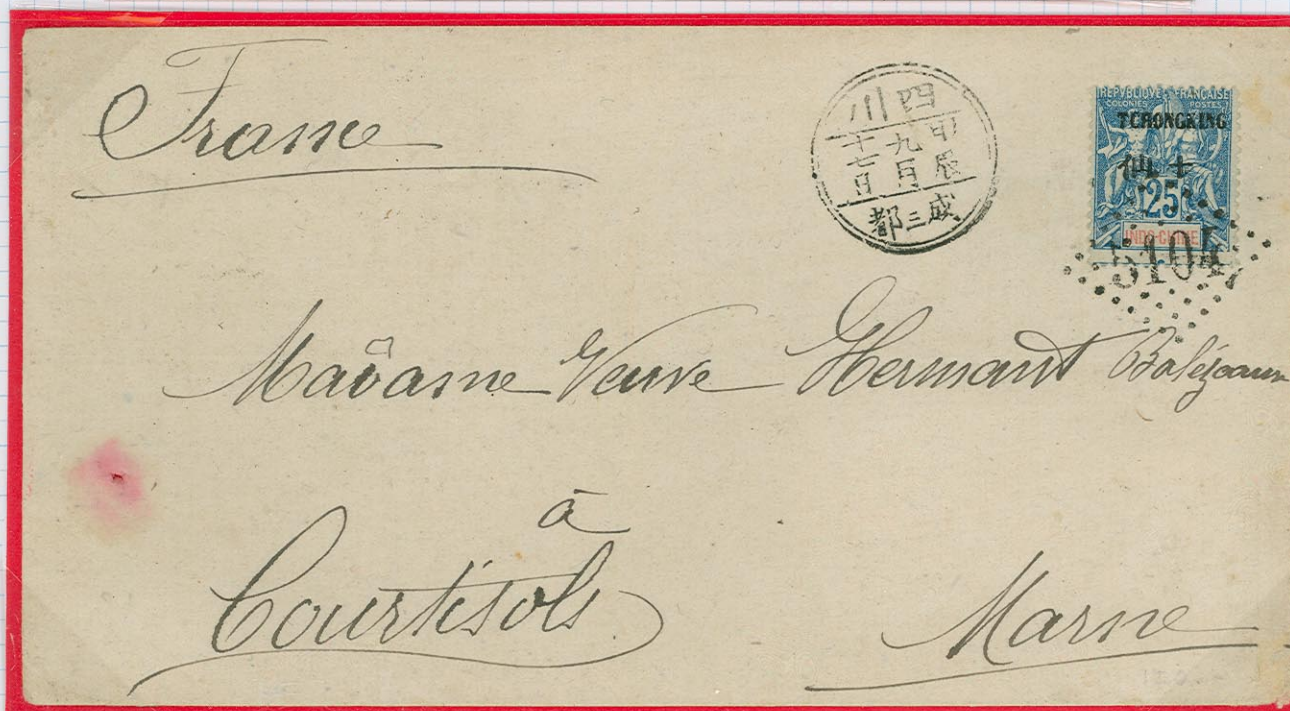 France
四川
甲辰
九月
十七日
成三都
REPVBLIQVE FRANCAISE
COLONIES POSTES
TCHONGKING
十仙
25
INDO-CHINE
5104
Madame Veuve Hermant
à
Courtisols
Marne